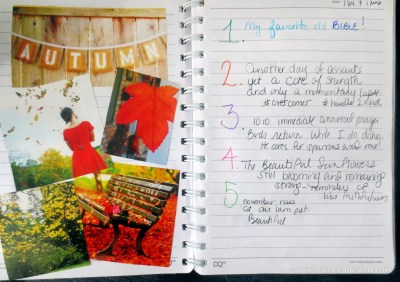 AUTUMN
1. My favorite is BIBLE!
2. Another day of
yet a core of strength
and only a momentary lapse
# overcomer
3 10:10 immediate answered prayer
Birds return while I do dishes
for sparrows and me!
4. The Beautiful Sunflowers
still blooming and remaining
strong - reminders of
5 november roses
at our
Beautiful